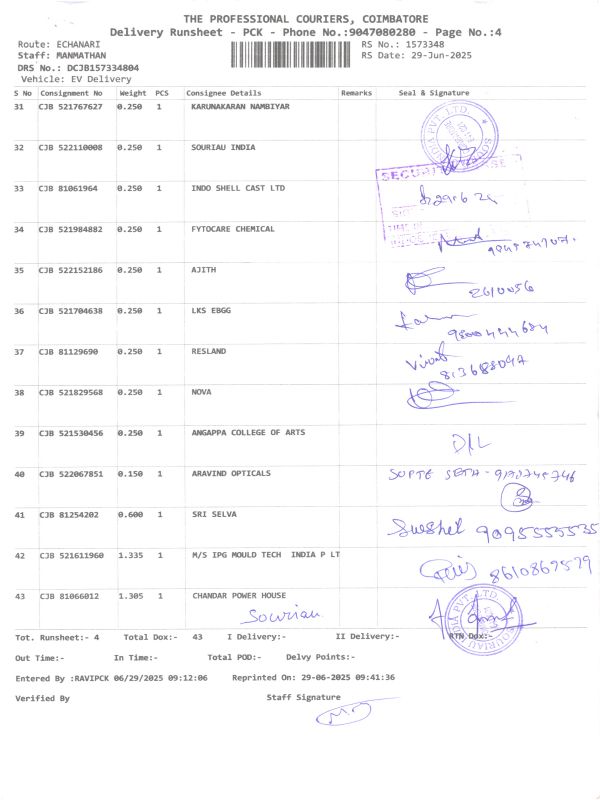 THE PROFESSIONAL COURIERS, COIMBATORE
Delivery Runsheet - PCK - Phone No.:9047080280 - Page No.:4
Route: ECHANARI RS No.: 1573348
Staff: MANMATHAN RS Date: 29-Jun-2025
DRS No.: DCJB157334804
Vehicle: EV Delivery
S No Consignment No Weight PCS Consignee Details Remarks Seal & Signature
31 CJB 521767627 0.250 1 KARUNAKARAN NAMBIYAR
32 CJB 522110008 0.250 1 SOURIAU INDIA
33 CJB 81061964 0.250 1 INDO SHELL CAST LTD
34 CJB 521984882 0.250 1 FYTOCARE CHEMICAL
35 CJB 522152186 0.250 1 AJITH
36 CJB 521704638 0.250 1 LKS EBGG
37 CJB 81129690 0.250 1 RESLAND
38 CJB 521829568 0.250 1 NOVA
39 CJB 521530456 0.250 1 ANGAPPA COLLEGE OF ARTS D/L
40 CJB 522067851 0.150 1 ARAVIND OPTICALS
41 CJB 81254202 0.600 1 SRI SELVA 9095553535
42 CJB 521611960 1.335 1 M/S IPG MOULD TECH INDIA P LT 8610869579
43 CJB 81066012 1.305 1 CHANDAR POWER HOUSE
Souriau
Tot. Runsheet:- 4 Total Dox:- 43 I Delivery:- II Delivery:- RTN Dox:-
Out Time:- In Time:- Total POD:- Delvy Points:-
Entered By :RAVIPCK 06/29/2025 09:12:06 Reprinted On: 29-06-2025 09:41:36
Verified By Staff Signature